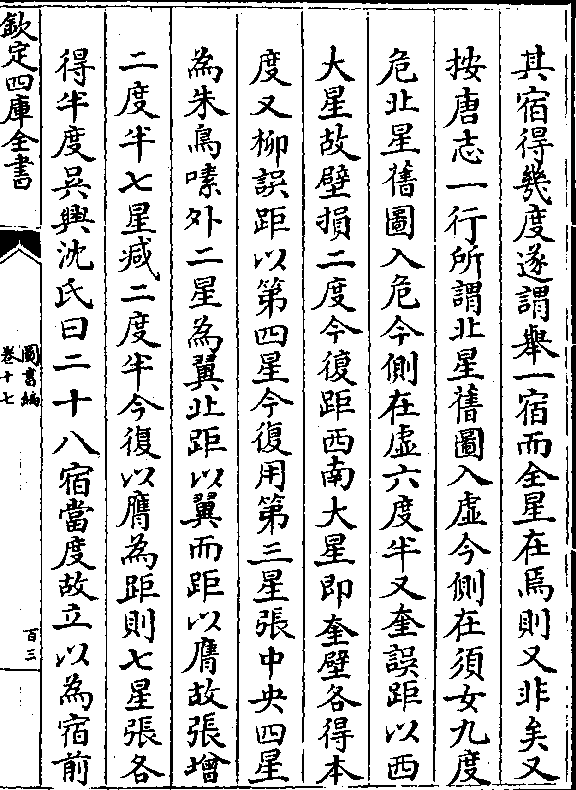 其宿得幾度遂謂舉一宿而全星在焉則又非矣又
按唐志一行所謂北星舊圖入虛今側在須女九度
危北星舊圖入危今側在虛六度半又奎誤距以西
大星故壁損二度今復距西南大星即奎壁各得本
度又柳誤距以第四星今復用第三星張中央四星
為朱鳥嗉外二星為翼北距以翼而距以膺故張增
二度半七星減二度半今復以膺為距則七星張各
得半度吳興沈氏曰二十八宿當度故立以為宿前
欽定四庫全書
圖書編
卷十七
百三